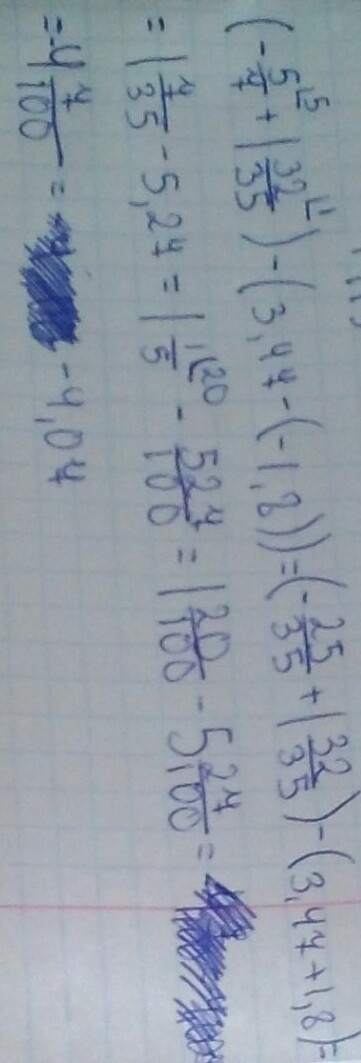 (-5/7⌊5 + 1 32/35⌊1) - (3,44 - (-1,8)) = (-25/35 + 1 32/35) - (3,44 + 1,8) =
= 1 7/35 - 5,24 = 1 1/5⌊20 - 524/100 = 1 20/100 - 5 24/100 =
= -4 4/100 = -4,04